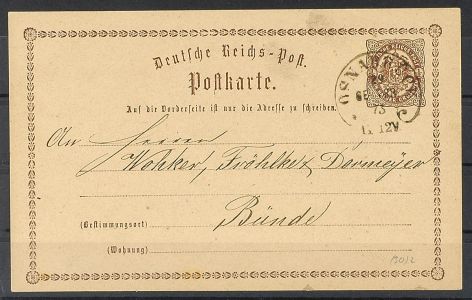 Deutsche Reichs-Post.
Postkarte.
Auf die Vorderseite ist nur die Adresse zu schreiben.
OSNABRÜCK
73
12V.
An Herren
Wohker, Fröhlke & Dermeyer
(Bestimmungsort) Bünde
(Wohnung)